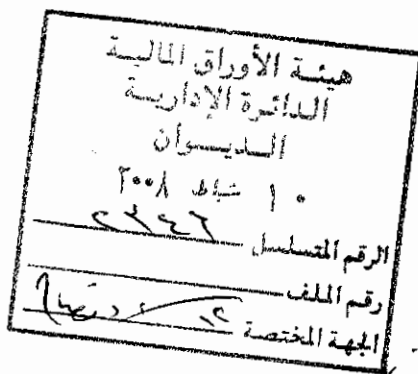 هيئة الأوراق المالية
الدائرة الإدارية
الديوان
١٠ شباط ٢٠٠٨
الرقم المتسلسل ٢٣٤٦
رقم الملف
الجهة المختصة